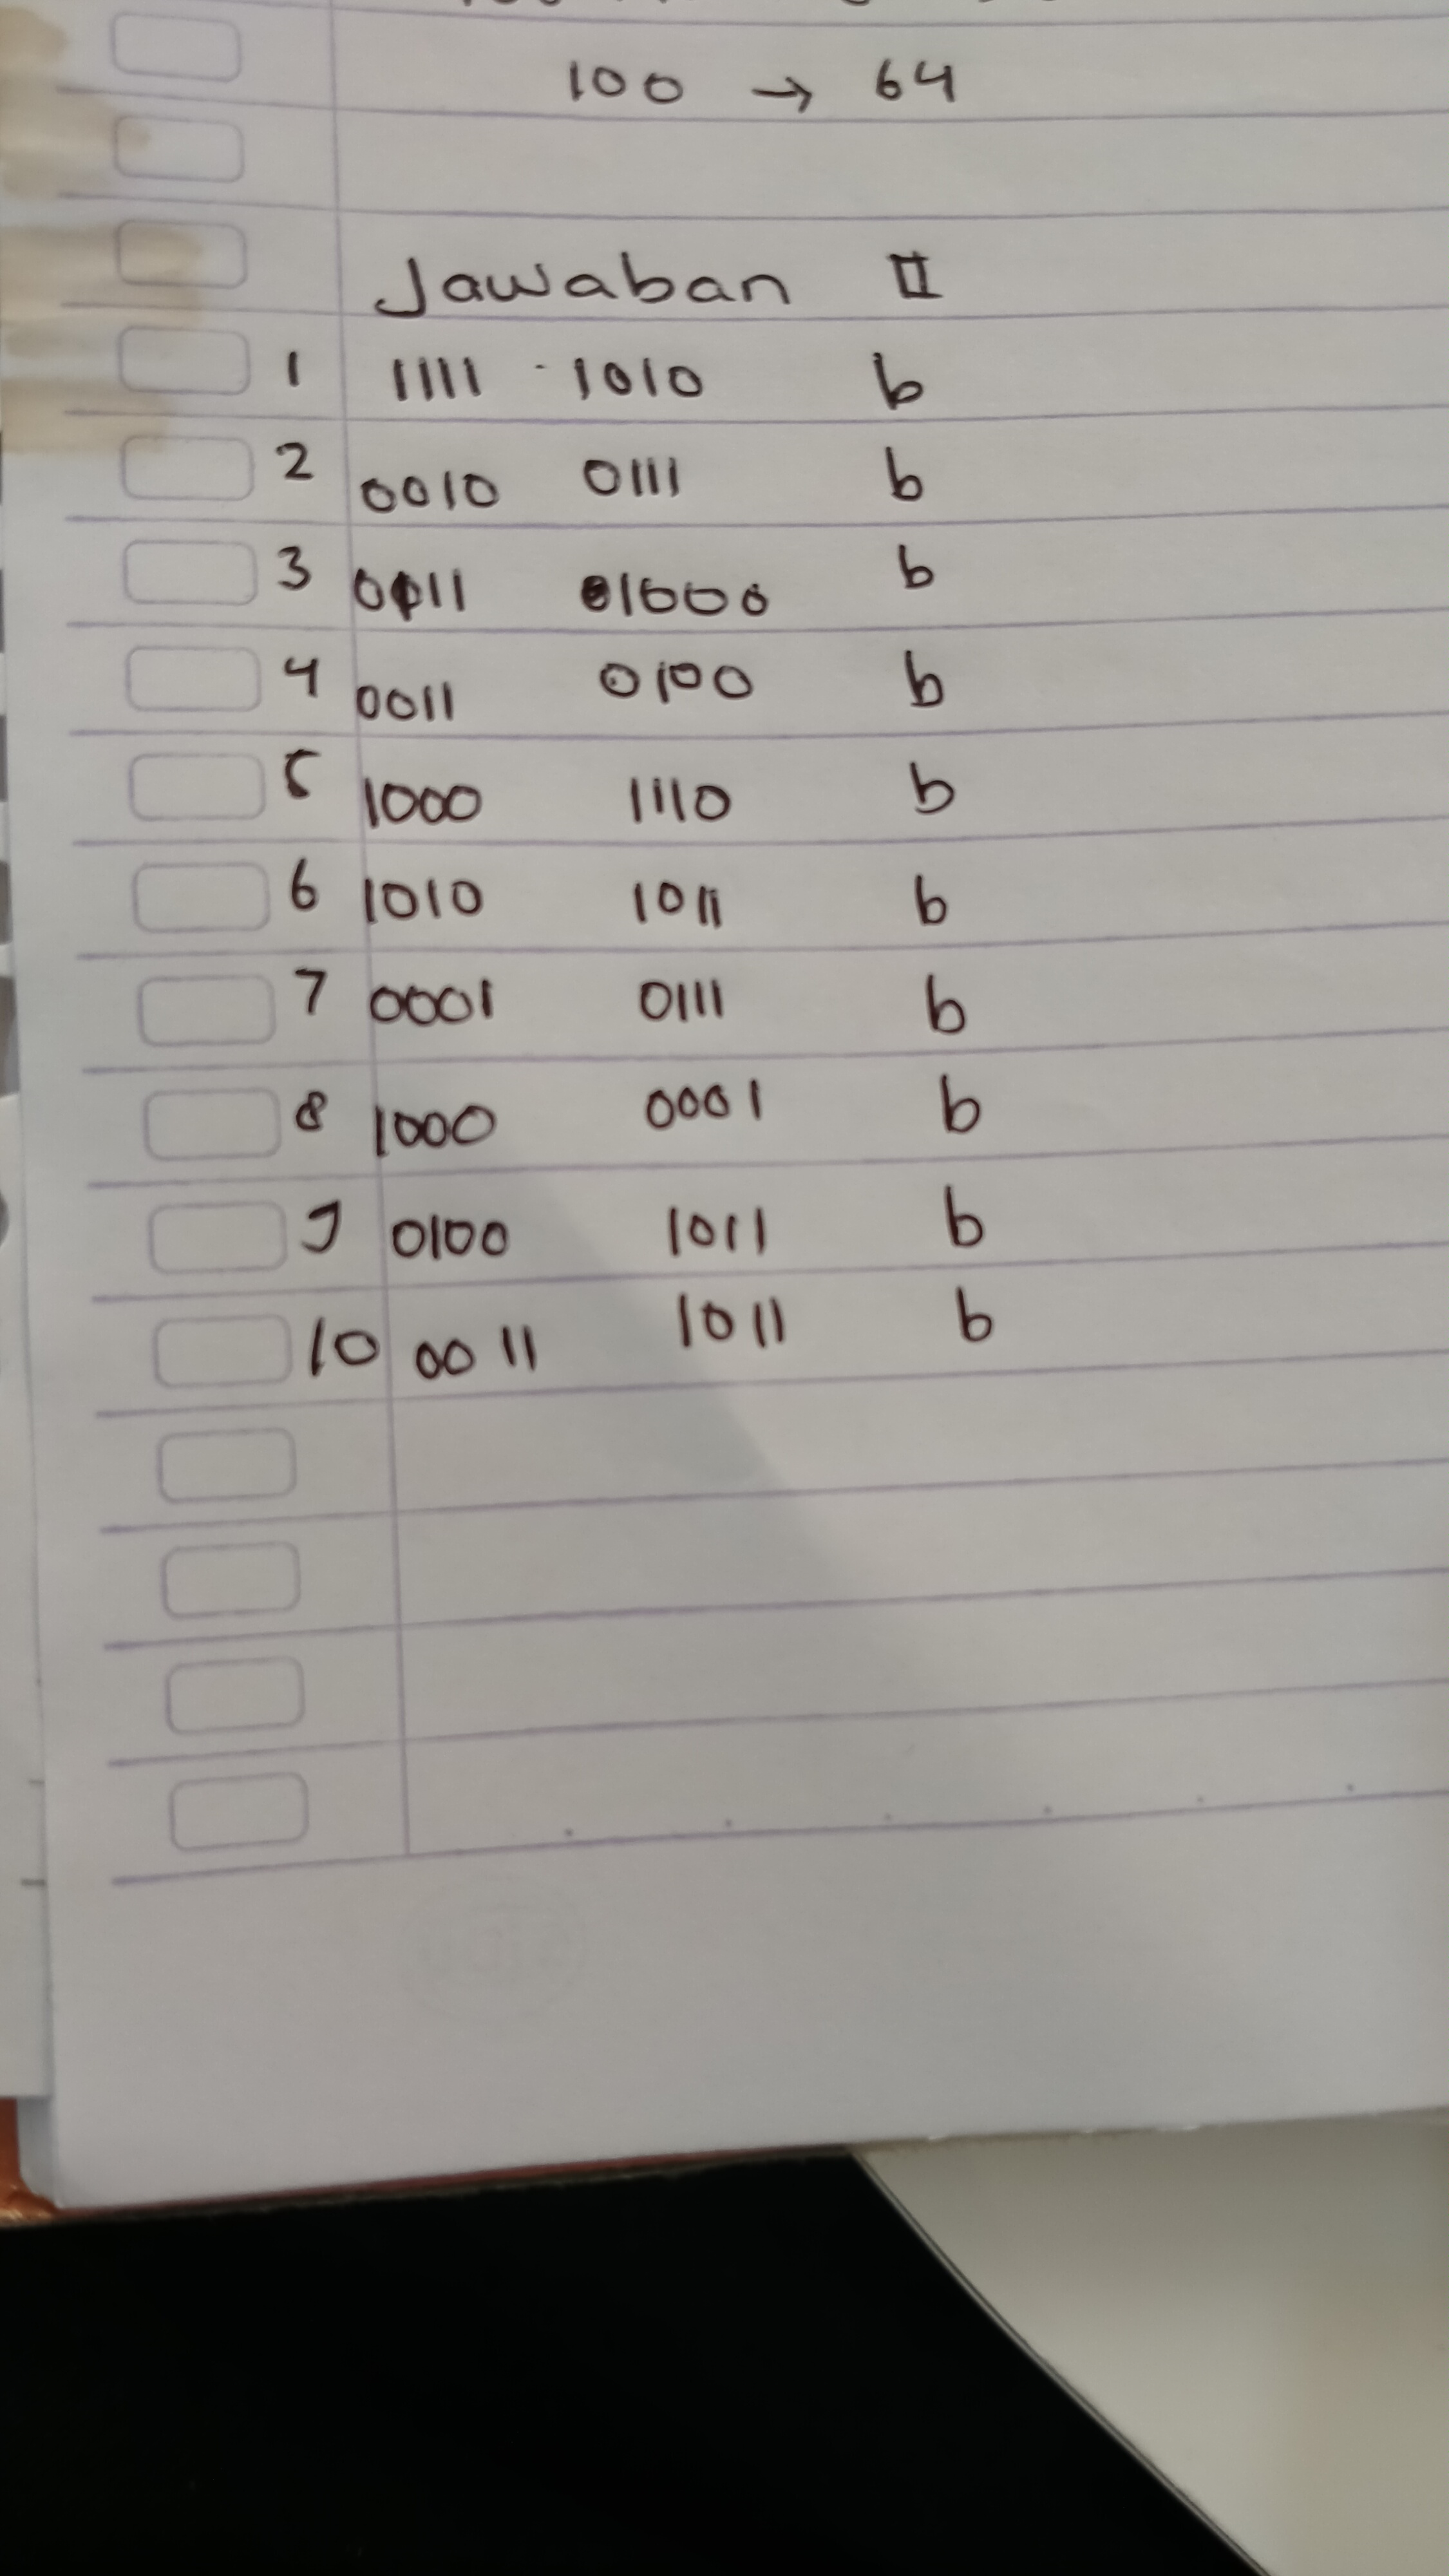 100 → 64
Jawaban II
1 1111 1010 b
2 0010 0111 b
3 0011 1000 b
4 0011 0100 b
5 1000 1110 b
6 1010 1011 b
7 0001 0111 b
8 1000 0001 b
9 0100 1011 b
10 0011 1011 b